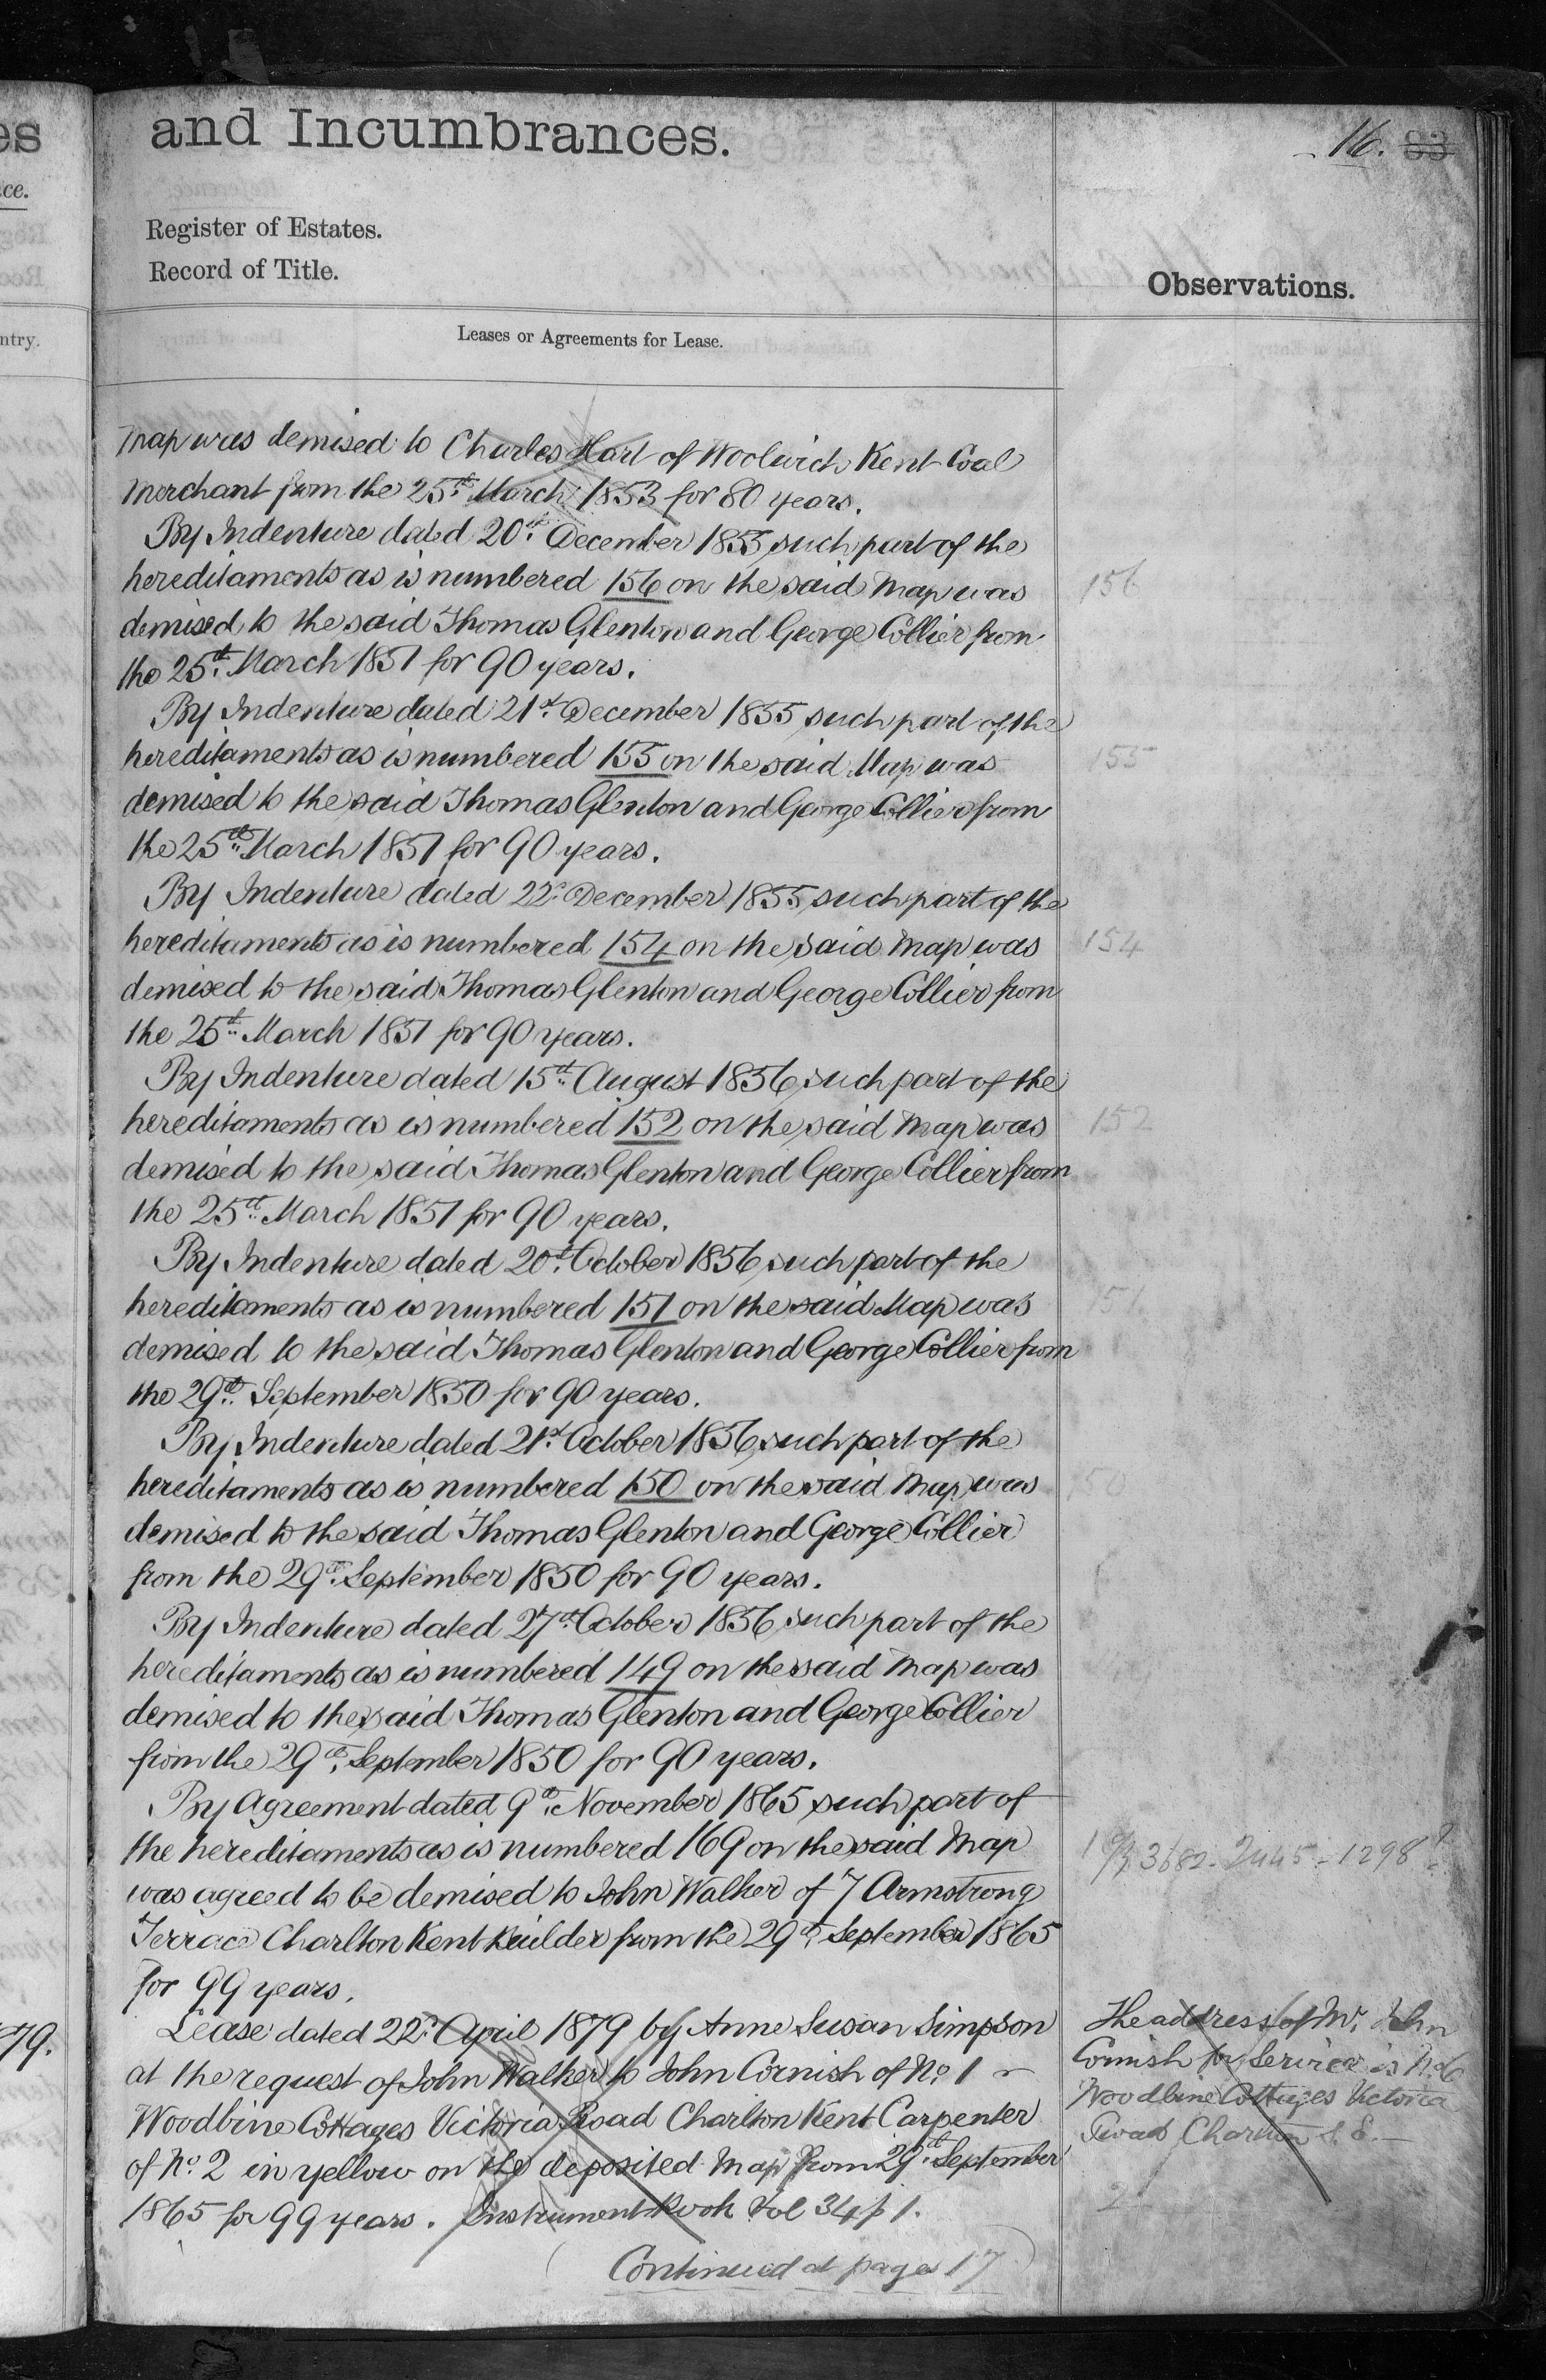 es
ce.
ntry.
79.
and Incumbrances.
16. 83
Register of Estates.
Record of Title.
Observations.
Leases or Agreements for Lease.
Map was demised to Charles Hart of Woolwich Kent Coal
Merchant from the 25th March 1853 for 80 years.
By Indenture dated 20th December 1855 such part of the
hereditaments as is numbered 156 on the said Map was
156
demised to the said Thomas Glenton and George Collier from
the 25th March 1851 for 90 years.
By Indenture dated 21st December 1855 such part of the
hereditaments as is numbered 155 on the said Map was
155
demised to the said Thomas Glenton and George Collier from
the 25th March 1851 for 90 years.
By Indenture dated 22d December 1855 such part of the
hereditaments as is numbered 154 on the said Map was
154
demised to the said Thomas Glenton and George Collier from
the 25th March 1851 for 90 years.
By Indenture dated 15th August 1856 such part of the
hereditaments as is numbered 152 on the said Map was
152
demised to the said Thomas Glenton and George Collier from
the 25th March 1851 for 90 years.
By Indenture dated 20th October 1856 such part of the
hereditaments as is numbered 151 on the said Map was
151
demised to the said Thomas Glenton and George Collier from
the 29th September 1850 for 90 years.
By Indenture dated 21st October 1856 such part of the
hereditaments as is numbered 150 on the said Map was
150
demised to the said Thomas Glenton and George Collier
from the 29th September 1850 for 90 years.
By Indenture dated 27th October 1856 such part of the
hereditaments as is numbered 149 on the said Map was
demised to the said Thomas Glenton and George Collier
from the 29th September 1850 for 90 years.
By Agreement dated 9th November 1865 such part of
the hereditaments as is numbered 169 on the said Map
3682 - 2445 - 1298 ?
was agreed to be demised to John Walker of 7 Armstrong
Terrace Charlton Kent Builder from the 29th September 1865
for 99 years.
Lease dated 22d April 1879 by Anne Susan Simpson
at the request of John Walker to John Cornish of No. 1
Woodbine Cottages Victoria Road Charlton Kent Carpenter
of No. 2 in yellow on the deposited Map from 29th September
1865 for 99 years. Instrument Book Vol 34 p 1.
The address of Mr. John
Cornish for Service is No. 6
Woodbine Cottages Victoria
Road Charlton S. E.
2
(Continued at page 17)